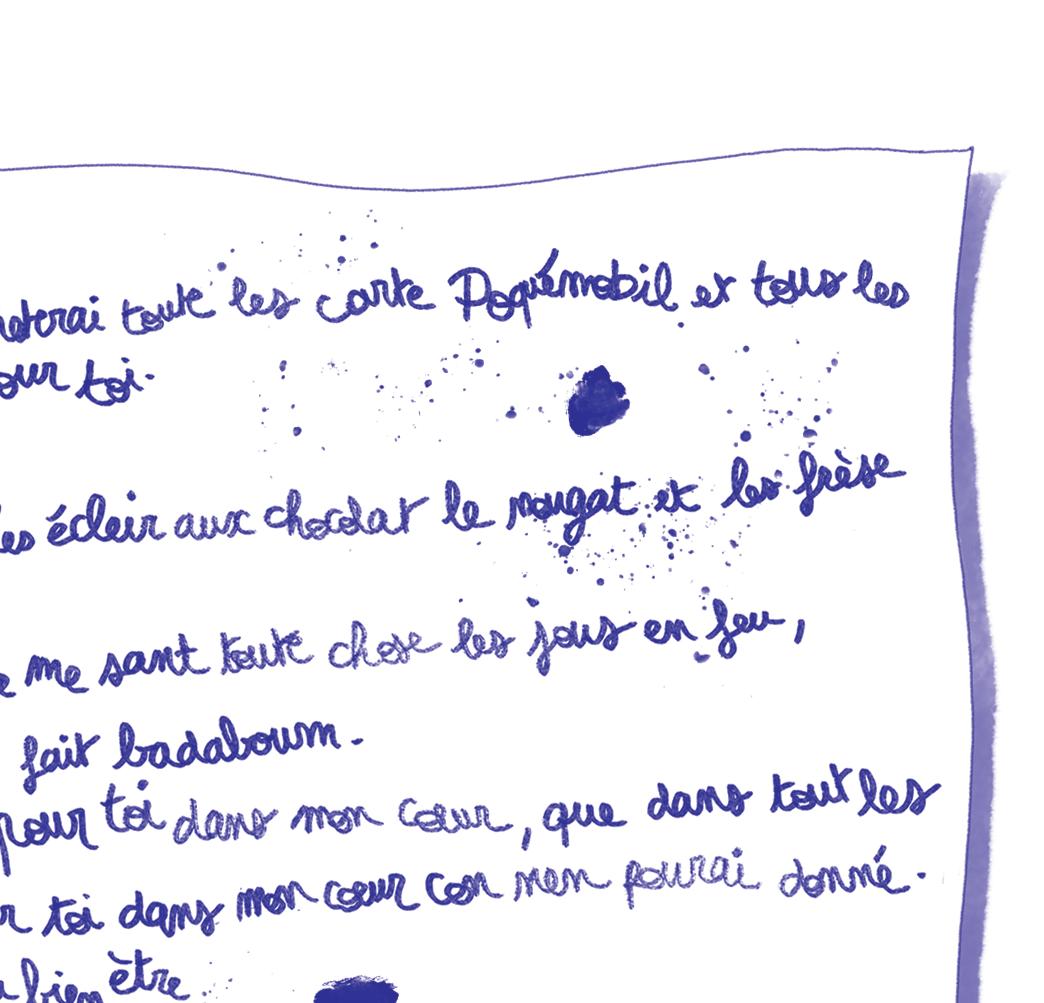 toute les carte Poquémobil et tous les
our toi.
les écleir aux chocolat le nougat et les frèse
me sant toute chose les jous en feu,
fait badaboum.
pour toi dans mon cœur, que dans tout les
toi dans mon cœur con nen pourai donné.
bien être